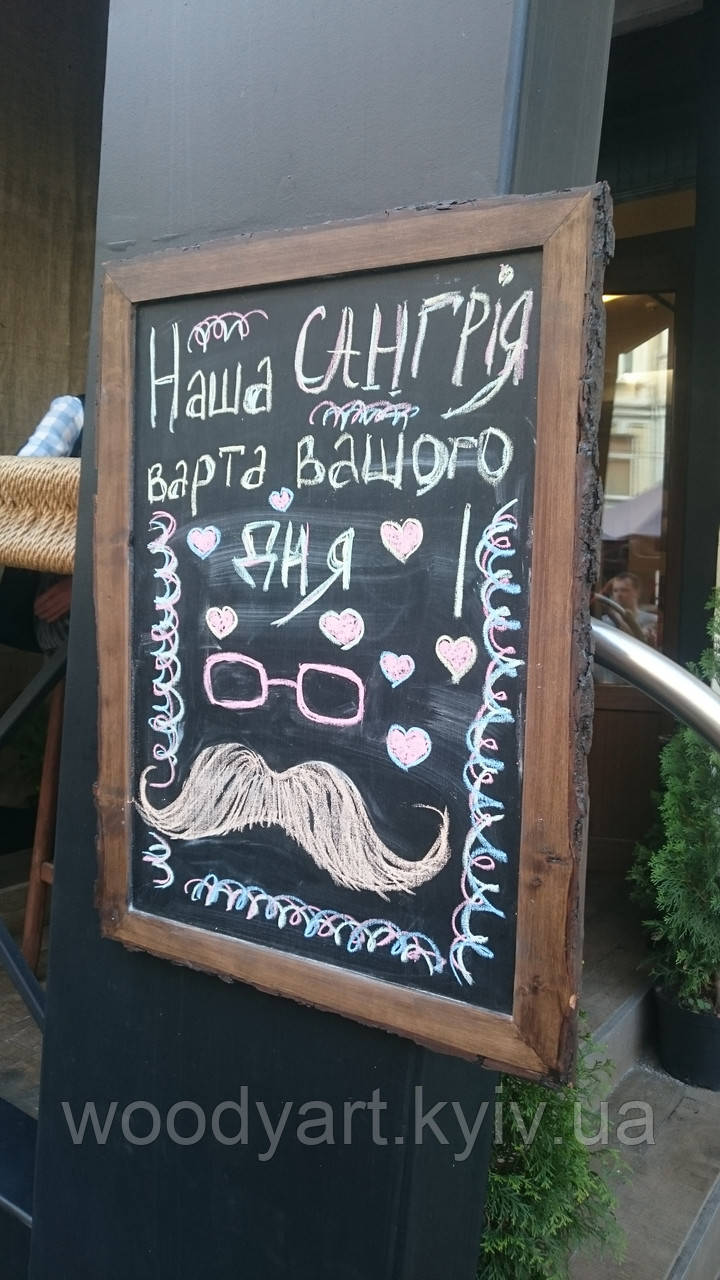 Наша САНГРІЯ
варта вашого
ДНЯ !
woodyart.kyiv.ua